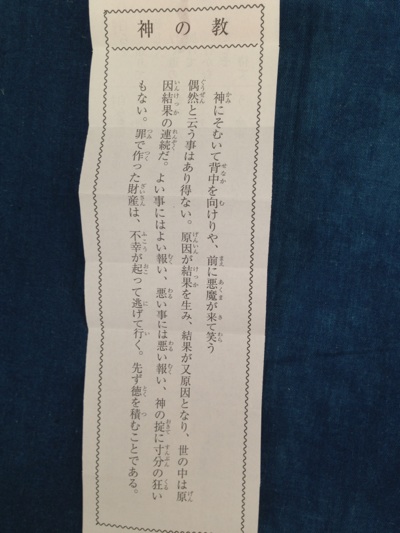 神の教
神にそむいて背中を向けりや、前に悪魔が来て笑う
偶然と云う事はあり得ない。原因が結果を生み、結果が又原因となり、世の中は原
因結果の連続だ。よい事にはよい報い、悪い事には悪い報い、神の掟に寸分の狂い
もない。罪で作った財産は、不幸が起って逃げて行く。先ず徳を積むことである。